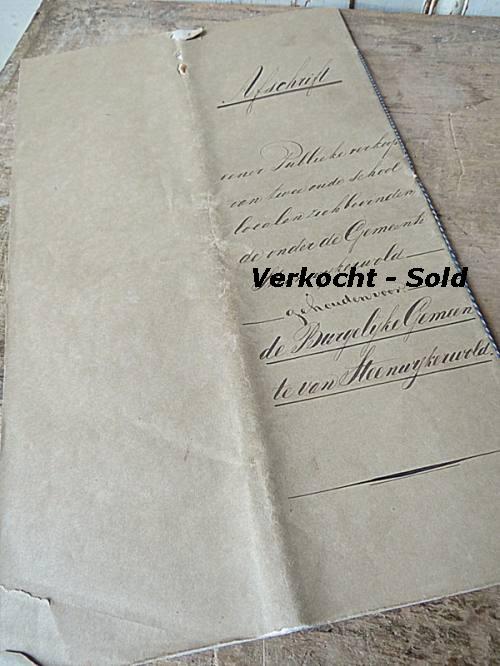 Afschrift
eener Publieke verkoop
van twee oude school
localen zich bevinden
de onder de Gemeente
Steenwijkerwold
Verkocht - Sold
gehouden voor
de Burgelijke Gemeen
te van Steenwijkerwold.